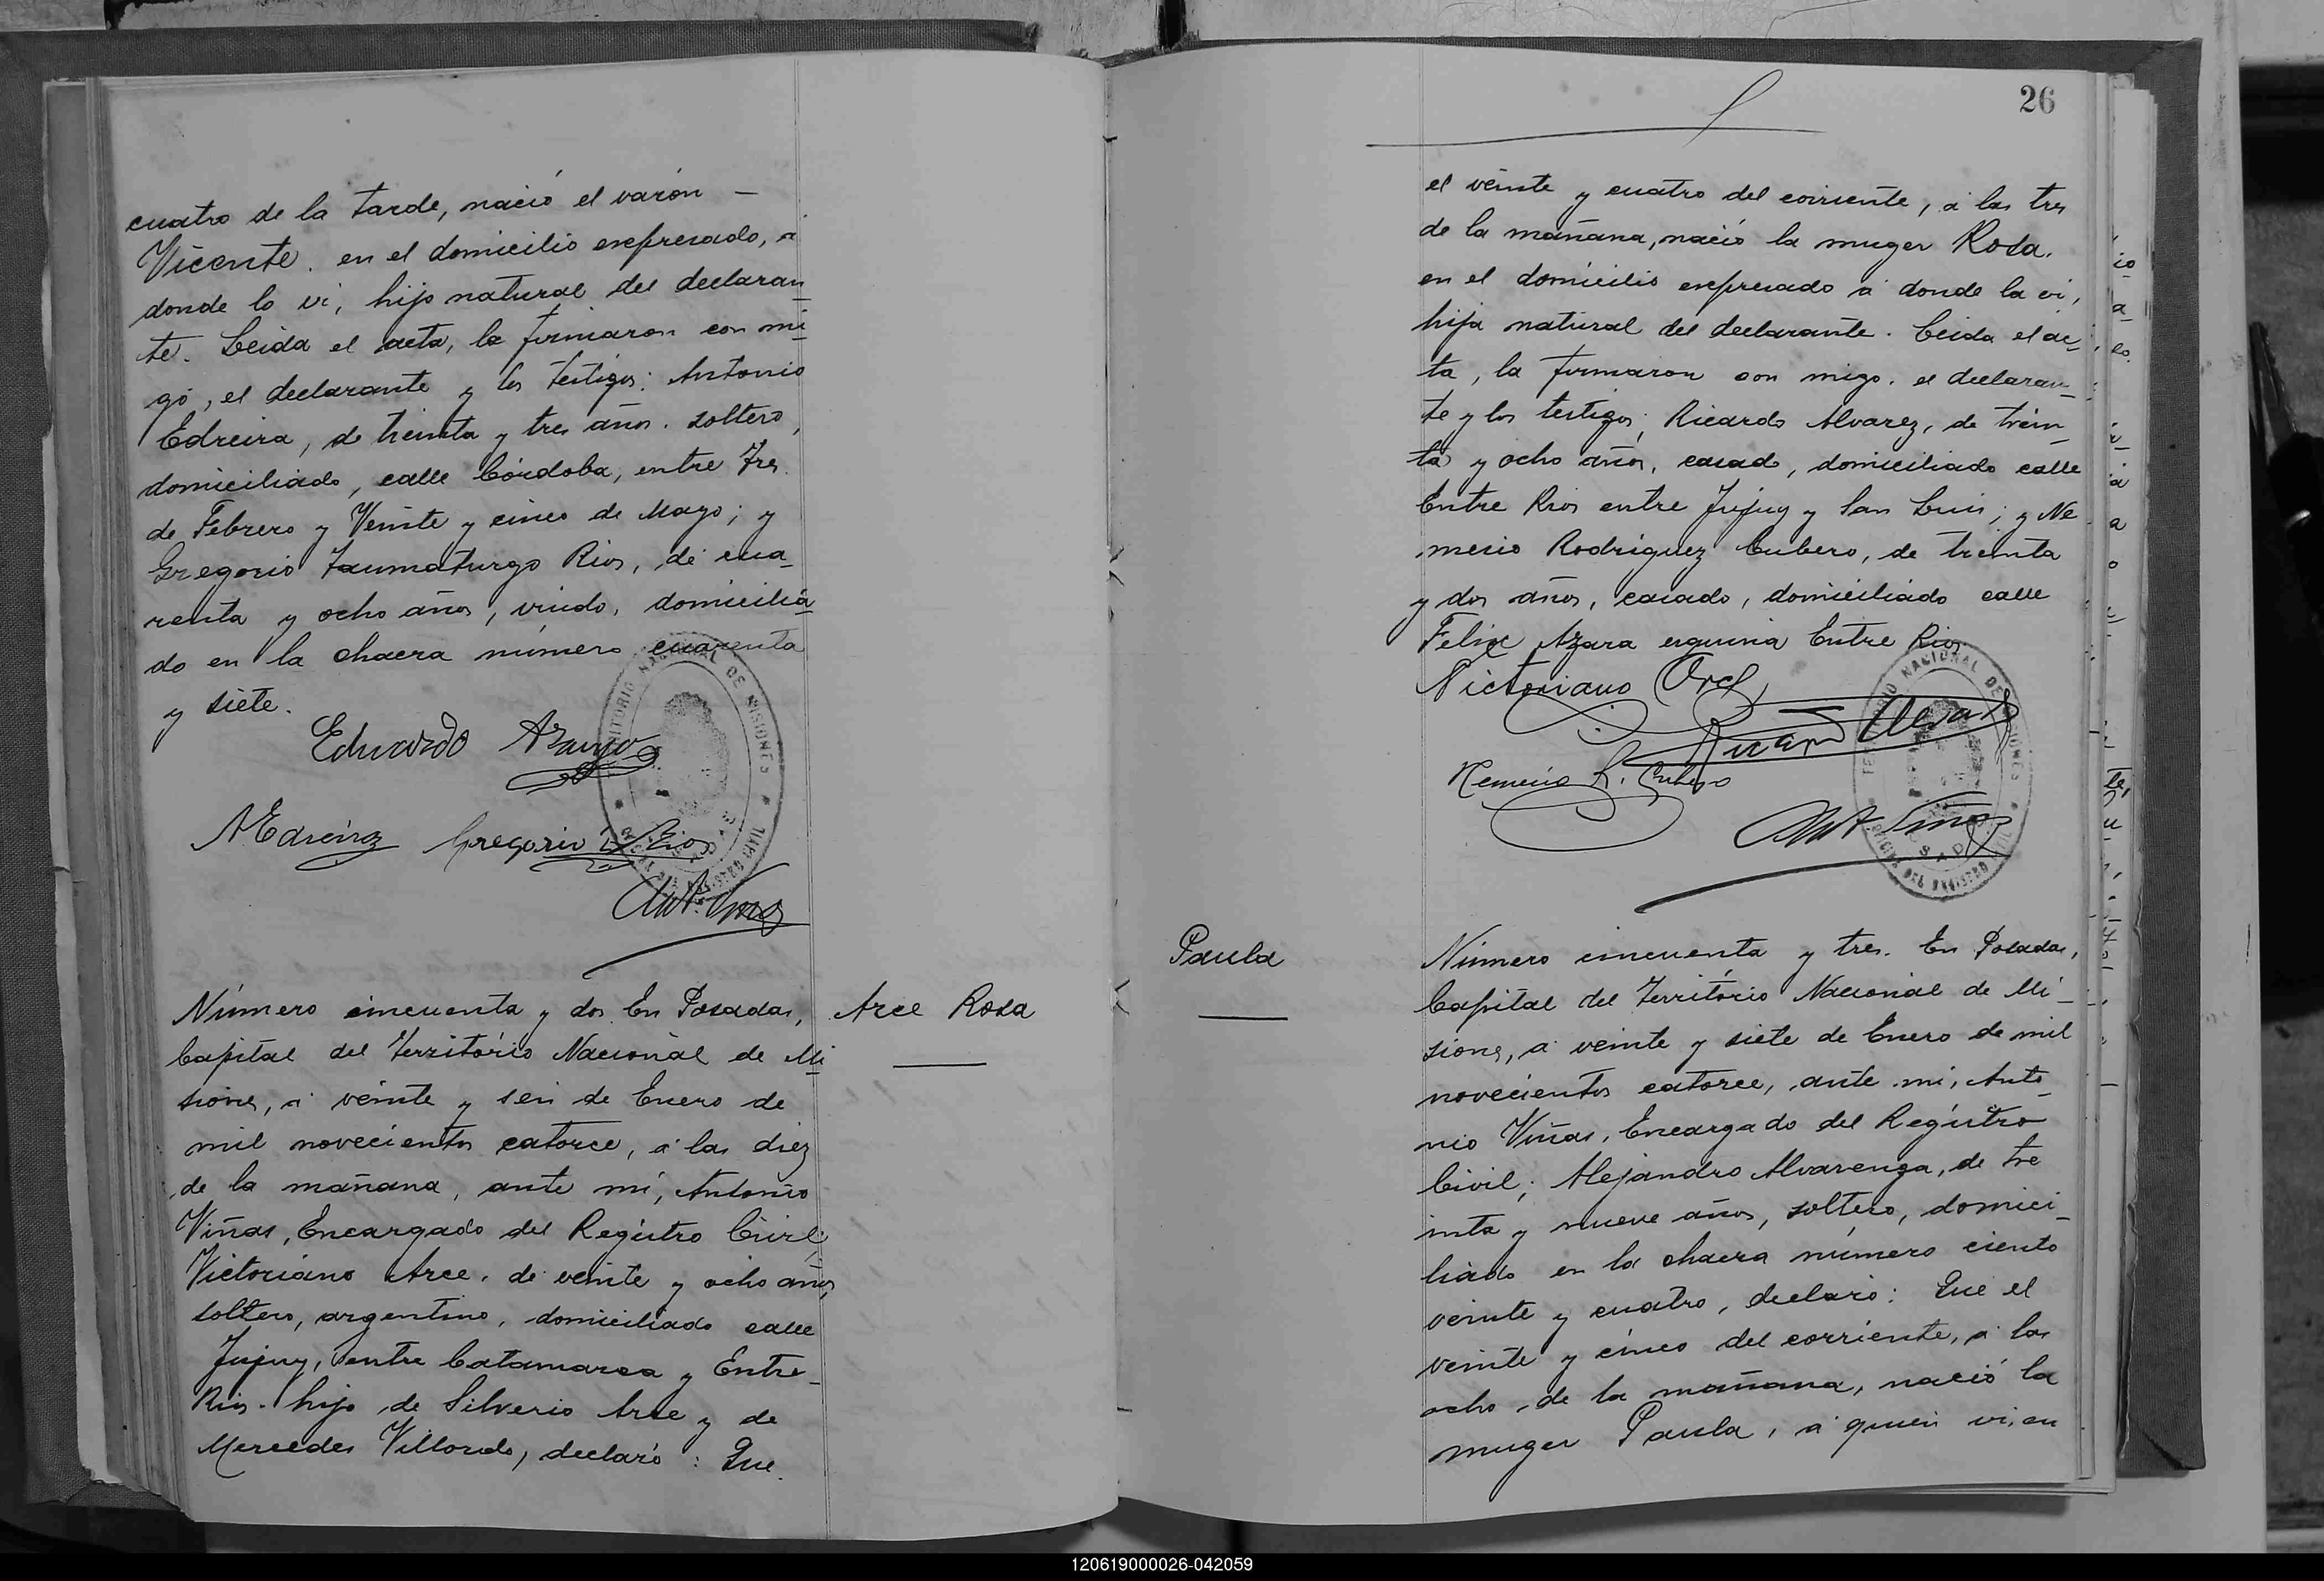 cuatro de la tarde, nació el varón —
Vicente. en el domicilio expresado, a
donde lo vi, hijo natural del declaran
te. Leida el acta, la firmaron con mi
go, el declarante y los testigos: Antonio
Edreira, de treinta y tres años. soltero,
domiciliado, calle Córdoba, entre Tres
de Febrero y Veinte y cinco de Mayo; y
Gregorio Taumaturgo Rios, de cua
renta y ocho años, viudo, domicilia
do en la chacra número cuarenta
y siete.
Eduardo Araujo
A Edreira Gregorio T. Rios
Ant. Viñas
TERRITORIO NACIONAL DE MISIONES
Número cincuenta y dos En Posadas,
Capital del Territorio Nacional de Mi
siones, a veinte y seis de Enero de
mil novecientos catorce, a las diez
de la mañana, ante mi, Antonio
Viñas, Encargado del Registro Civil;
Victoriano Arce, de veinte y ocho años,
soltero, argentino, domiciliado calle
Jujuy, entre Catamarca y Entre
Rios. hijo de Silverio Arce y de
Mercedes Villordo, declaró: Que
Arce Rosa
26
el veinte y cuatro del corriente, a las tres
de la mañana, nació la muger Rosa.
en el domicilio expresado a donde la vi,
hija natural del declarante. Leida el ac
ta, la firmaron con migo, el declaran
te y los testigos; Ricardo Alvarez, de trein
ta y ocho años, casado, domiciliado calle
Entre Rios entre Jujuy y San Luis; y Ne
mesio Rodriguez Cubero, de treinta
y dos años, casado, domiciliado calle
Felix Azara esquina Entre Rios
Victoriano Arce
Ricardo Alvarez
Nemesio R. Cubero
Ant Viñas
TERRITORIO NACIONAL DE MISIONES
OFICINA DEL REGISTRO CIVIL
Paula
Número cincuenta y tres. En Posadas,
Capital del Territorio Nacional de Mi
siones, a veinte y siete de Enero de mil
novecientos catorce, ante mi, Anto
nio Viñas, Encargado del Registro
Civil; Alejandro Alvarenga, de tre
inta y nueve años, soltero, domici
liado en la chacra número ciento
veinte y cuatro, declaró: Que el
veinte y cinco del corriente, a las
ocho de la mañana, nació la
muger Paula, a quien vi, en
120619000026-042059